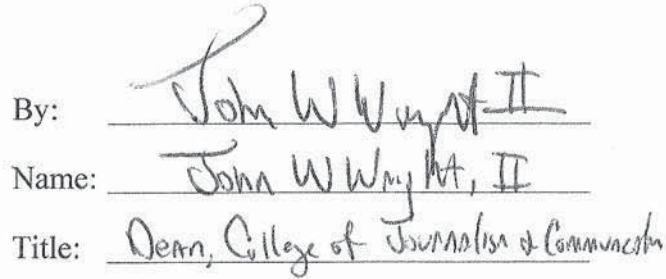 By: John W Wright II
Name: John W Wright, II
Title: Dean, College of Journalism & Communication